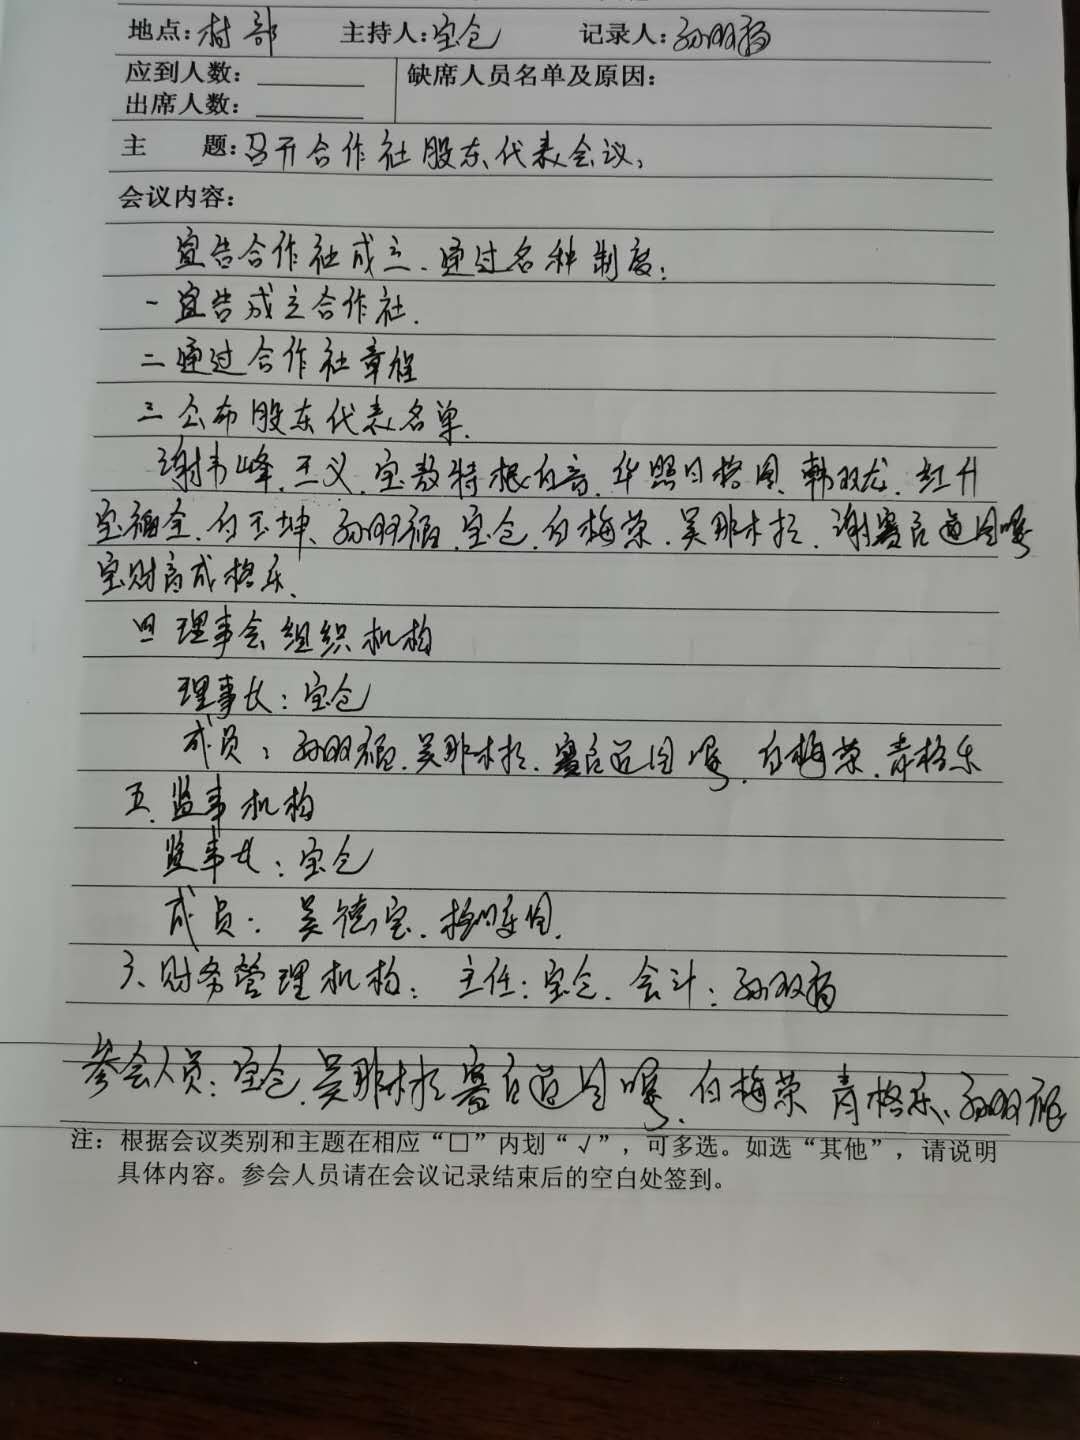 地点：村部 主持人：宝仓 记录人：孙双福
应到人数： 缺席人员名单及原因：
出席人数：
主 题：召开合作社股东代表会议，
会议内容：
宣告合作社成立、通过各种制度：
一 宣告成立合作社.
二 通过合作社章程
三 公布股东代表名单.
谢韦峰、王义、宝敖特根白音、华照日格图、韩双龙、红升
宝福全、白玉坤、孙双福、宝仓、白梅荣、吴那木拉、谢赛吉道图嘎
宝财音 格乐、
四 理事会组织机构
理事长：宝仓
成员：孙双福、吴那木拉、赛吉道图嘎、白梅荣、青格乐
五、监事机构
监事长：宝仓
成员：吴德宝、
六、财务管理机构： 主任：宝仓、会计：孙双福
参会人员：宝仓、吴那木拉 赛吉道图嘎、白梅荣 青格乐、孙双福
注：根据会议类别和主题在相应“□”内划“√”，可多选。如选“其他”，请说明
具体内容。参会人员请在会议记录结束后的空白处签到。